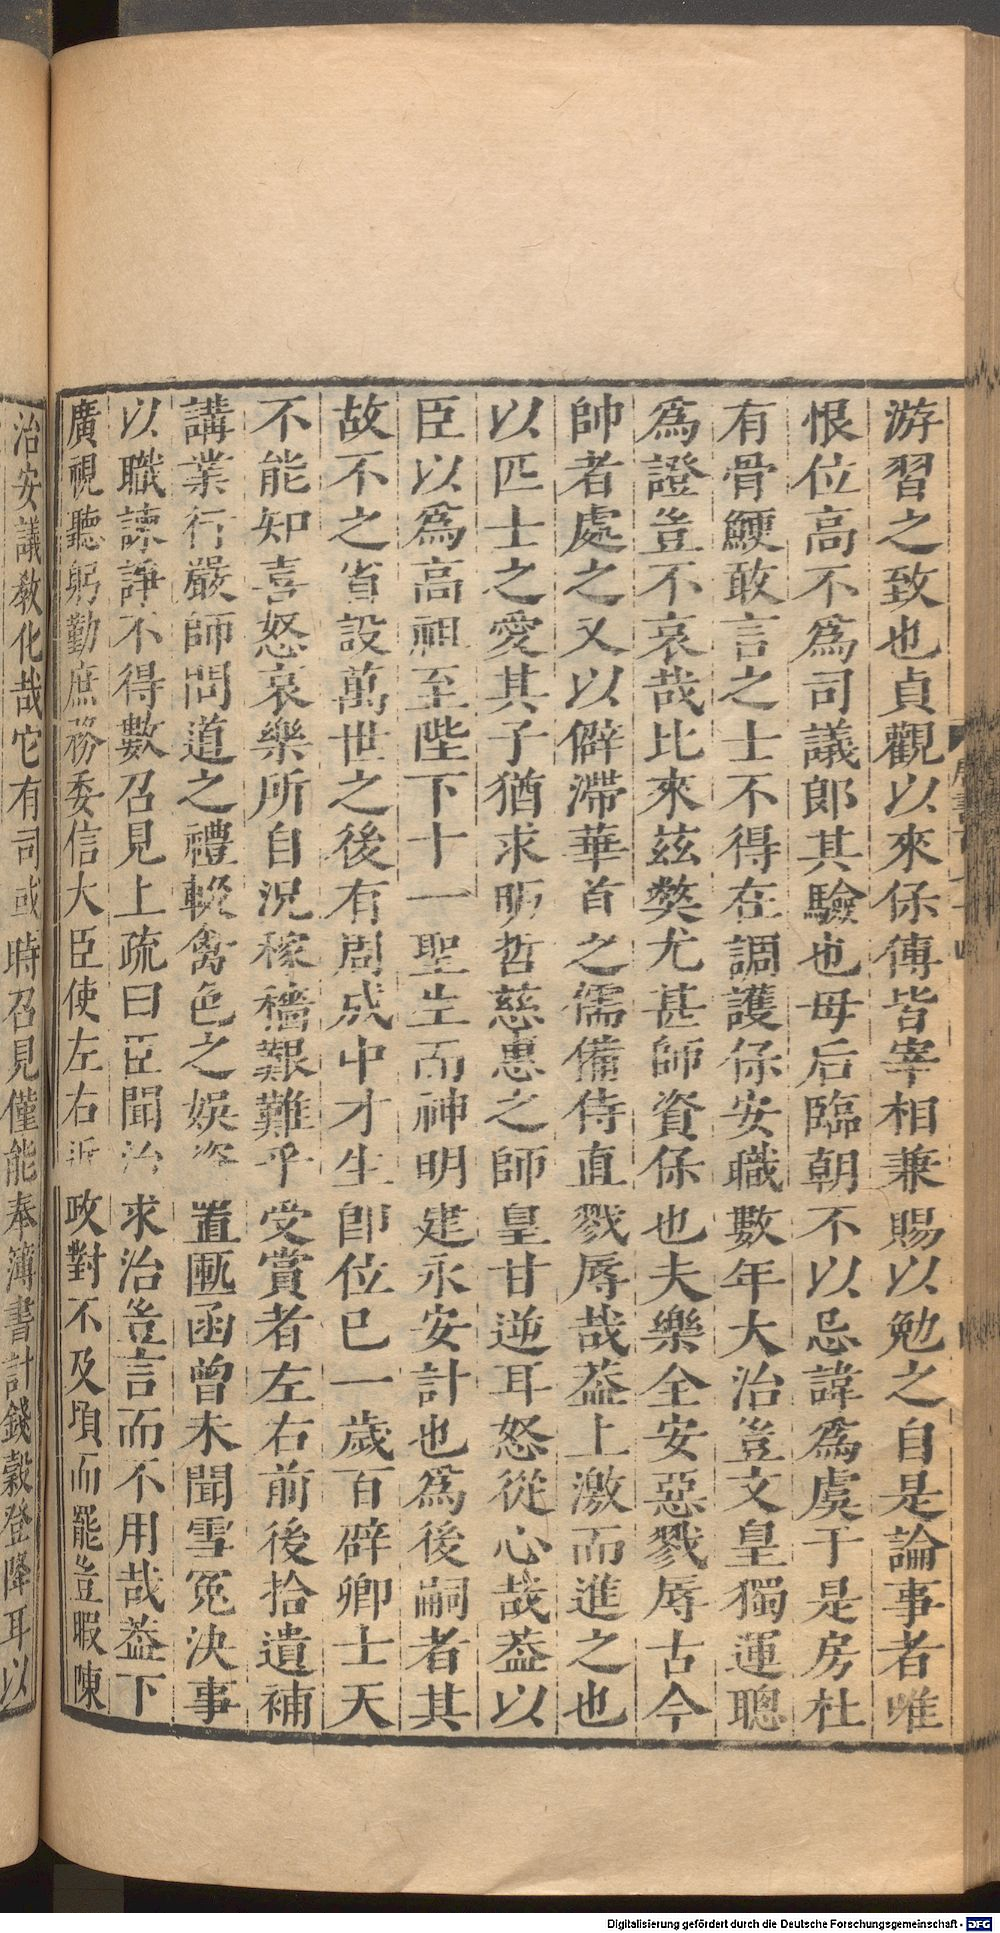 游習之致也貞觀以來保傅皆宰相兼賜以勉之自是論事者唯
恨位高不爲司議郎其驗也母后臨朝不以忌諱爲虞于是房杜
有骨鯁敢言之士不得在調護保安職數年大治豈文皇獨運聰
爲證豈不哀哉比來茲獘尤甚師資保也夫樂全安惡戮辱古今
帥者處之又以僻滯華首之儒備侍直戮辱哉葢上激而進之也
以匹士之愛其子猶求明哲慈惠之師皇甘逆耳怒從心哉葢以
臣以爲高祖至陛下十一聖生而神明建永安計也爲後嗣者其
故不之省設萬世之後有周成中才生卽位巳一歲百辟卿士天
不能知喜怒哀樂所自況稼穡艱難乎受賞者左右前後拾遺補
講業行嚴師問道之禮輟禽色之娛資置匭函曾未聞雪冤決事
以職諫諍不得數召見上疏曰臣聞治求治豈言而不用哉葢下
廣視聽躬勤庶務委信大臣使左右近政對不及頃而罷豈暇陳
治安議教化哉它有司或時召見僅能奉簿書計錢穀登降耳以
Digitalisierung gefördert durch die Deutsche Forschungsgemeinschaft - DFG